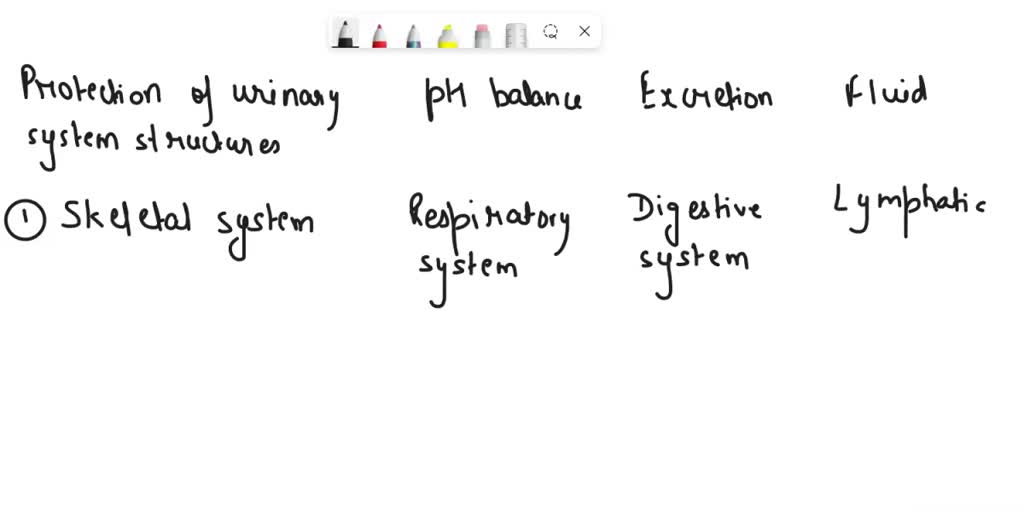 Protection of urinary pH balance Excretion Fluid
system structures
① Skeletal system Respiratory Digestive Lymphatic
system system